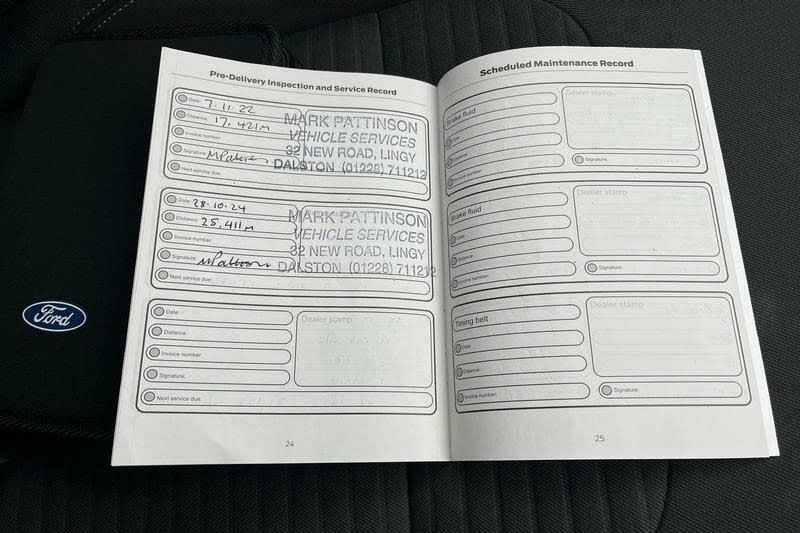 Pre-Delivery Inspection and Service Record
Date: 7.11.22
Distance: 17,421m
Invoice number:
Signature: MPattinson
Next service due:
MARK PATTINSON
VEHICLE SERVICES
32 NEW ROAD, LINGY
DALSTON (01228) 711212
Date: 28.10.24
Distance: 25,411m
Invoice number:
Signature: MPattinson
Next service due:
MARK PATTINSON
VEHICLE SERVICES
32 NEW ROAD, LINGY
DALSTON (01228) 711212
Date
Distance:
Invoice number
Signature:
Next service due:
Dealer stamp
24
Scheduled Maintenance Record
Brake fluid
Date
Distance:
Invoice number:
Dealer stamp
Signature:
Brake fluid
Date:
Distance:
Invoice number:
Dealer stamp
Signature:
Timing belt
Date
Distance:
Invoice number:
Dealer stamp
Signature:
25
Ford